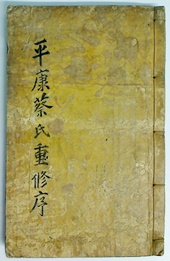 平康蔡氏重修序